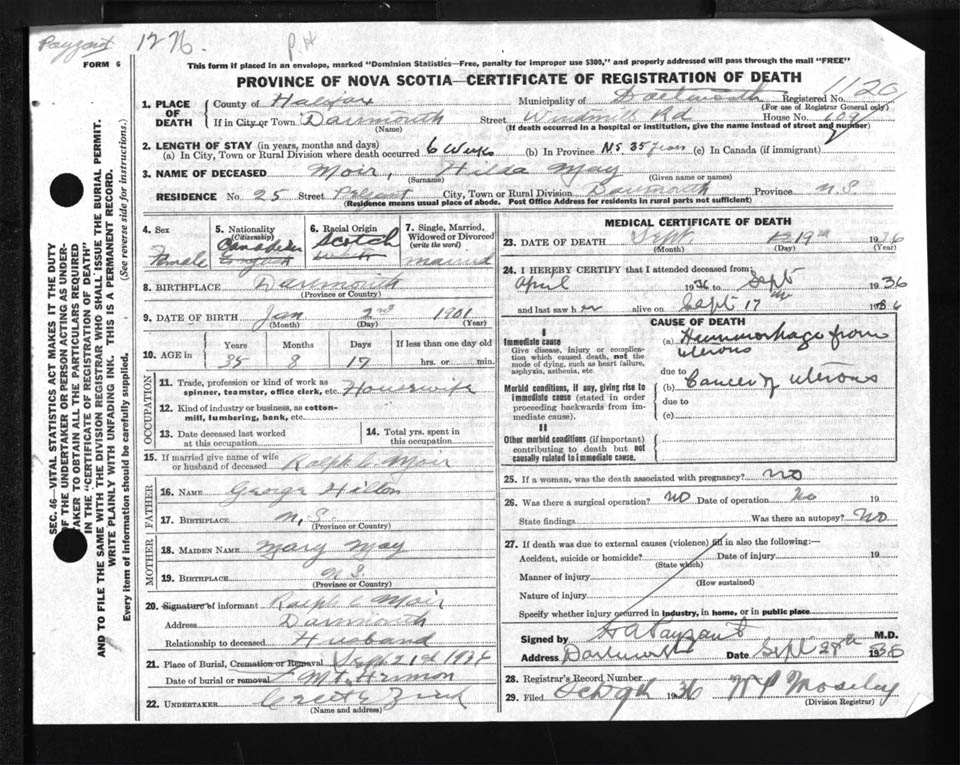 Payzant 1276. P.H
FORM 6
This form if placed in an envelope, marked "Dominion Statistics—Free, penalty for improper use $300," and properly addressed will pass through the mail "FREE"
PROVINCE OF NOVA SCOTIA—CERTIFICATE OF REGISTRATION OF DEATH
1. PLACE OF DEATH
County of Halifax Municipality of Dartmouth Registered No. 1120
(For use of Registrar General only)
If in City or Town Darmouth Street Windmill Rd House No. 109
(Name) (If death occurred in a hospital or institution, give the name instead of street and number)
2. LENGTH OF STAY (in years, months and days)
(a) In City, Town or Rural Division where death occurred 6 Weeks (b) In Province N.S. 35 years (c) In Canada (if immigrant)
3. NAME OF DECEASED Moir, Hilda May
(Surname) (Given name or names)
RESIDENCE No. 25 Street City, Town or Rural Division Darmouth Province N.S.
(Residence means usual place of abode. Post Office Address for residents in rural parts not sufficient)
4. Sex
Female
5. Nationality
(Citizenship)
Canadian
English
6. Racial Origin
Scotch
7. Single, Married, Widowed or Divorced
(write the word)
married
8. BIRTHPLACE Dartmouth
(Province or Country)
9. DATE OF BIRTH Jan 2nd 1901
(Month) (Day) (Year)
10. AGE in
Years Months Days If less than one day old
35 8 17 hrs. or min.
OCCUPATION
11. Trade, profession or kind of work as
spinner, teamster, office clerk, etc. Housewife
12. Kind of industry or business, as cotton-
mill, lumbering, bank, etc.
13. Date deceased last worked
at this occupation
14. Total yrs. spent in
this occupation
15. If married give name of wife
or husband of deceased Ralph C Moir
FATHER
16. NAME George Hilton
17. BIRTHPLACE N.S.
(Province or Country)
MOTHER
18. MAIDEN NAME Mary May
19. BIRTHPLACE N.S.
(Province or Country)
20. Signature of informant Ralph C Moir
Address Darmouth
Relationship to deceased Husband
21. Place of Burial, Cremation or Removal Sept 21st 1936
Date of burial or removal Mt Hermon
22. UNDERTAKER
(Name and address)
MEDICAL CERTIFICATE OF DEATH
23. DATE OF DEATH Sept. 19th 1936
(Month) (Day) (Year)
24. I HEREBY CERTIFY that I attended deceased from
April 1936 to Sept 1936
and last saw her alive on Sept 17th 1936
CAUSE OF DEATH
I
Immediate cause
Give disease, injury or complication which caused death, not the mode of dying, such as heart failure, asphyxia, asthenia, etc.
(a) Hemmorhage from
uterous
due to
Morbid conditions, if any, giving rise to immediate cause (stated in order proceeding backwards from immediate cause).
(b) Cancer of uterous
due to
(c)
II
Other morbid conditions (if important) contributing to death but not causally related to immediate cause.
25. If a woman, was the death associated with pregnancy? NO
26. Was there a surgical operation? NO Date of operation No 19
State findings Was there an autopsy? NO
27. If death was due to external causes (violence) fill in also the following:—
Accident, suicide or homicide? Date of injury 19
(State which)
Manner of injury
(How sustained)
Nature of injury
Specify whether injury occurred in industry, in home, or in public place
Signed by H A Payzant M.D.
Address Dartmouth Date Sept 28th 1936
28. Registrar's Record Number
29. Filed 1936 W P Moseley
(Division Registrar)
SEC. 46—VITAL STATISTICS ACT MAKES IT THE DUTY
OF THE UNDERTAKER OR PERSON ACTING AS UNDER-
TAKER TO OBTAIN ALL THE PARTICULARS REQUIRED
IN THE "CERTIFICATE OF REGISTRATION OF DEATH"
AND TO FILE THE SAME WITH THE DIVISION REGISTRAR WHO SHALL ISSUE THE BURIAL PERMIT.
WRITE PLAINLY WITH UNFADING INK. THIS IS A PERMANENT RECORD.
Every item of information should be carefully supplied. (See reverse side for instructions.)